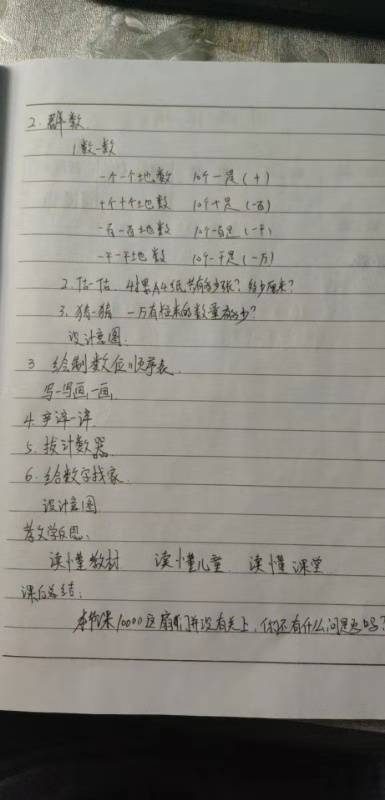 2. 群数
1 数一数
一个一个地数 10个一是(十)
十个十个地数 10个十是(一百)
一百一百地数 10个一百是(一千)
一千一千地数 10个一千是(一万)
2. 估一估. 4摞A4纸共有多少张? 多少厘米?
3. 猜一猜 一万有粒米的数量有多少?
设计意图.
3 绘制数位顺序表.
写一写画一画
4. 辛评一评.
5. 拔计数器.
6. 给数字找家.
设计意图
教学反思、
读懂教材 读懂儿童 读懂课堂
课后总结:
本节课10000这扇门并没有关上, 你还有什么问题吗?